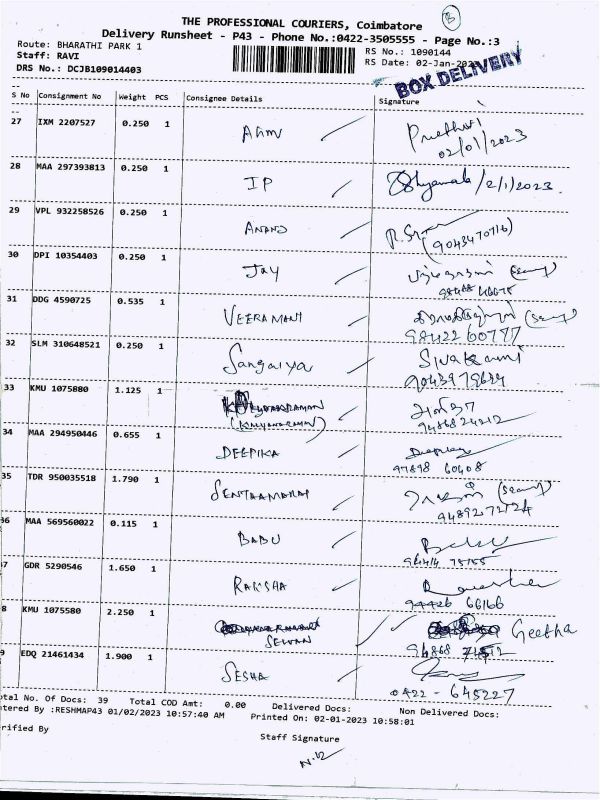 B
THE PROFESSIONAL COURIERS, Coimbatore
Delivery Runsheet - P43 - Phone No.:0422-3505555 - Page No.:3
Route: BHARATHI PARK 1
RS No.: 1090144
Staff: RAVI
RS Date: 02-Jan-2023
DRS No.: DCJB109014403
BOX DELIVERY
S No Consignment No Weight PCS Consignee Details Signature
27 IXM 2207527 0.250 1
02/01/2023
28 MAA 297393813 0.250 1 IP Shyamala/2/1/2023.
29 VPL 932258526 0.250 1 ANAND
(9043470716)
30 DPI 10354403 0.250 1 JAY
31 DDG 4590725 0.535 1 VEERAMANI
98422 60777
32 SLM 310648521 0.250 1 Sangaiya Sivakami
9043979634
33 KMU 1075880 1.125 1
(KALYANARAMAN)
9486824212
34 MAA 294950446 0.655 1 DEEPIKA
97898 60408
35 TDR 950035518 1.790 1 SENTHAMARAI
94892 72724
36 MAA 569560022 0.115 1 BABU
37 GDR 5290546 1.650 1 RAKSHA
94426 66166
38 KMU 1075580 2.250 1 SELVAN Geetha
39 EDQ 21461434 1.900 1 SESHA
0422 - 645227
Total No. Of Docs: 39 Total COD Amt: 0.00 Delivered Docs: Non Delivered Docs:
Entered By :RESHMAP43 01/02/2023 10:57:40 AM Printed On: 02-01-2023 10:58:01
Verified By Staff Signature